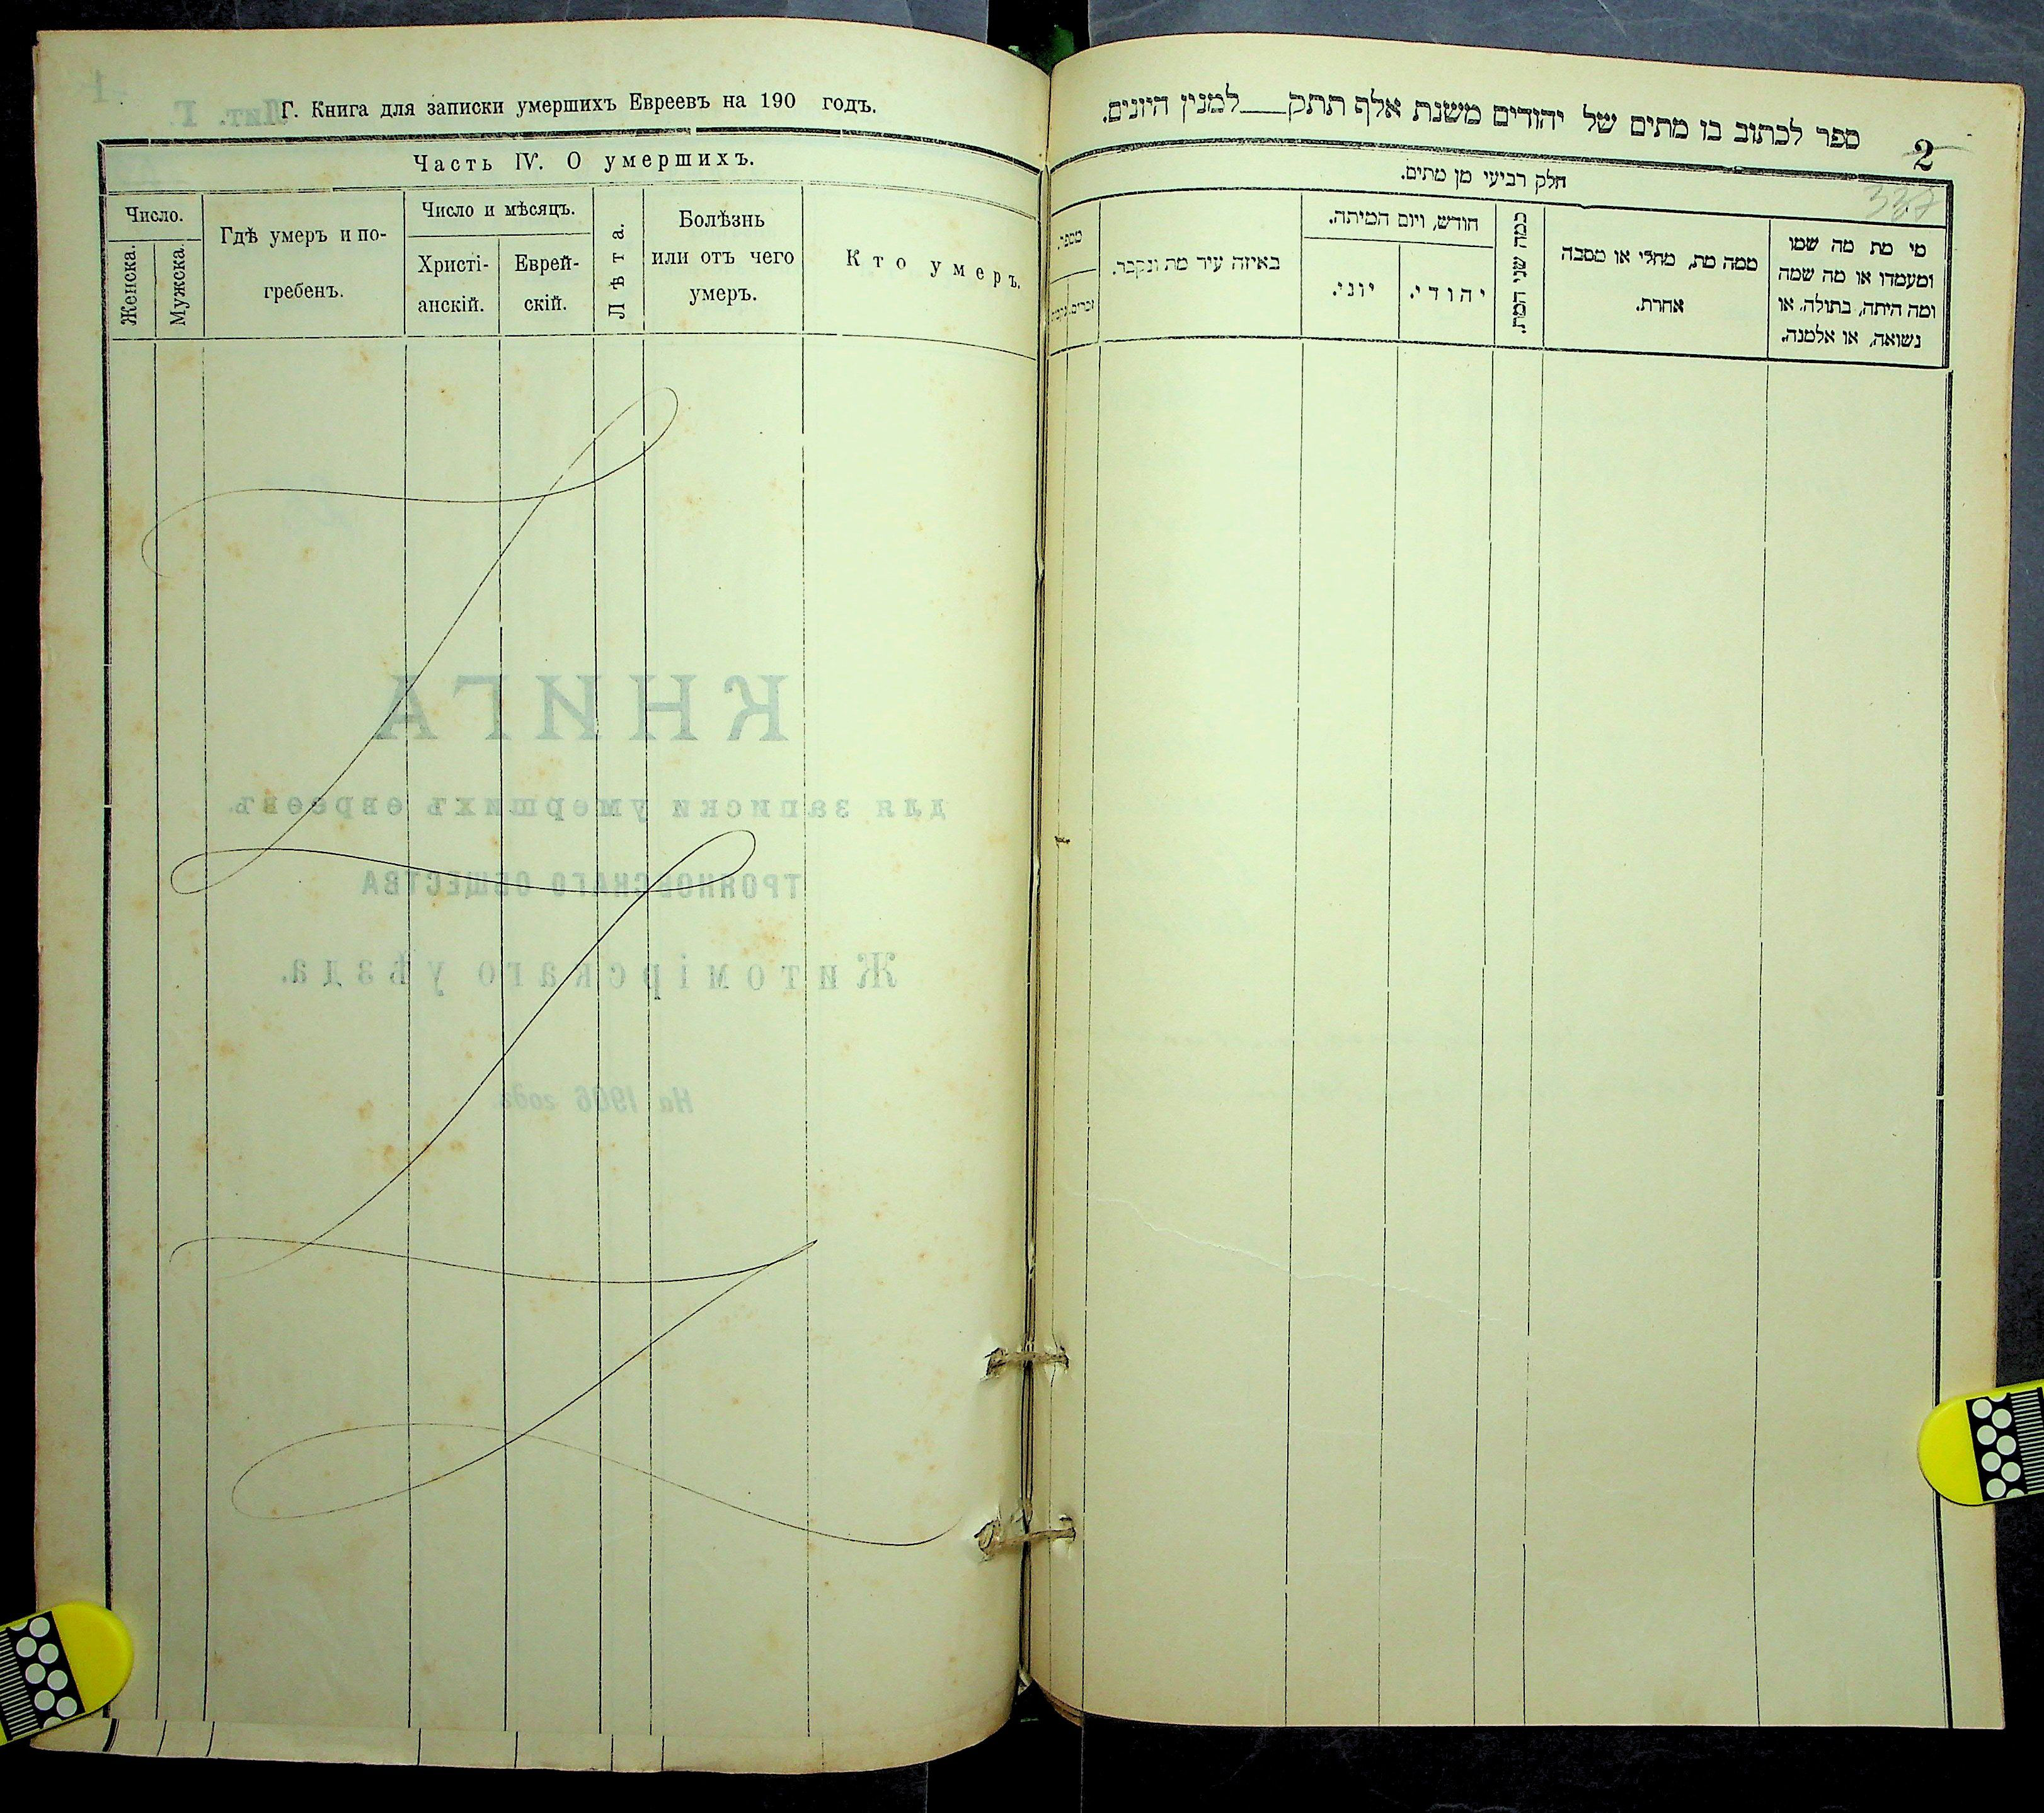 Г. Книга для записки умершихъ Евреевъ на 190 годъ.
Часть IV. О умершихъ.
Число.
Женска.
Мужска.
Гдѣ умеръ и по-
гребенъ.
Число и мѣсяцъ.
Христі-
анскій.
Еврей-
скій.
Лѣта.
Болѣзнь
или отъ чего
умеръ.
Кто умеръ.
КНИГА
для записки умершихъ евреевъ
ТРОЯНОВСКАГО ОБЩЕСТВА
Житомірскаго уѣзда.
На 1906 годъ
Лит. Г.
1
ספר לכתוב בו מתים של יהודים משנת אלף תתק___למנין היונים.
2
337
חלק רביעי מן מתים.
מי מת מה שמו
ומעמדו או מה שמה
ומה היתה, בתולה, או
נשואה, או אלמנה.
ממה מת, מחלי או מסבה
אחרת.
כמה שני המת.
חודש, ויום המיתה.
יהודי.
יוני.
באיזה עיר מת ונקבר.
מספר.
זכרים.